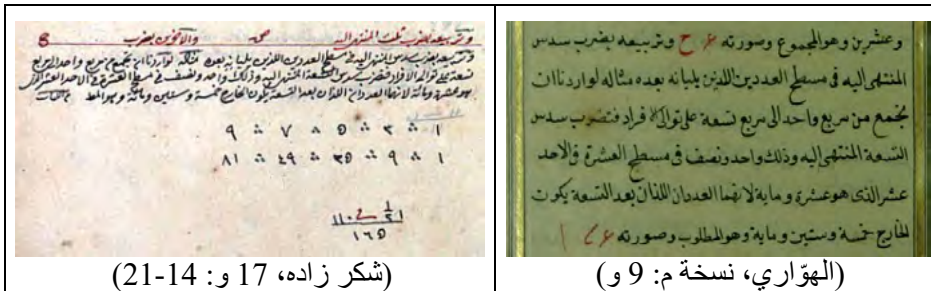 وعشرين وهو المجموع وصورته وتربيعه بضرب سدس
المنتهى اليه فى مسطح العددين اللذين يليانه بعده مثاله لو اردنا ان
نجمع من مربع واحد الى مربع تسعة على توالى الافراد فتضرب سدس
التسعة المنتهى اليه وذلك واحد ونصف فى مسطح العشرة فى الاحد
عشر الذى هو عشرة وماية لانهما العددان اللذان بعد التسعة يكون
الخارج خمسة وستين وماية وهو المطلوب وصورته
(الهوّاري، نسخة م: 9 و)
وتربيعه بضرب المنتهى اليه بضرب
وتربيعه بضرب سدس المنتهى اليه فى مسطح العددين اللذين يليانه بعده مثاله لو اردنا ان نجمع من مربع واحد الى مربع
تسعة على توالى الافراد فنضرب سدس التسعة المنتهى اليه وذلك واحد ونصف فى مسطح العشرة فى الاحد العشر الذى
هو عشرة ومائة لانهما العددان اللذان بعد التسعة يكون الخارج خمسة وستين ومائة وهو المط
١ ∴ ٣ ∴ ٥ ∴ ٧ ∴ ٩
١ ∴ ٩ ∴ ٢٥ ∴ ٤٩ ∴ ٨١
١٦٥
(شكر زاده، 17 و: 14-21)